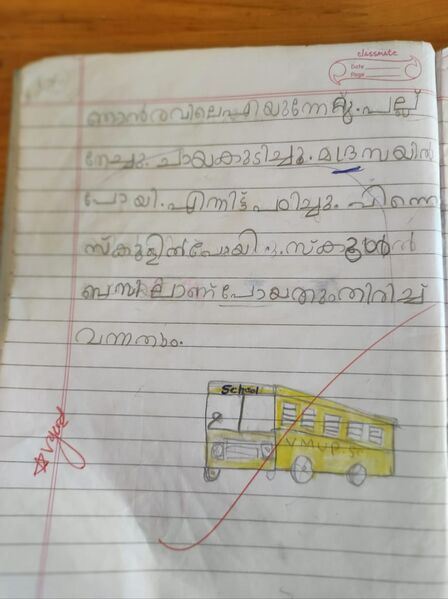 classmate
Date
Page
ഞാൻ രവിലെഏഴിയുന്നേറ്റു. പല്ല്
തേച്ചു. ചായകുടിച്ചു. മദ്രസയിൽ
പോയി. എന്നിട്ട് പഠിച്ചു. പിന്നെ
സ്കൂളിൽ പോയി. സ്കൂൾ
ബസിലാണ് പോയതുംതിരിച്ച്
വന്നതും.
School
VMUP.Sc